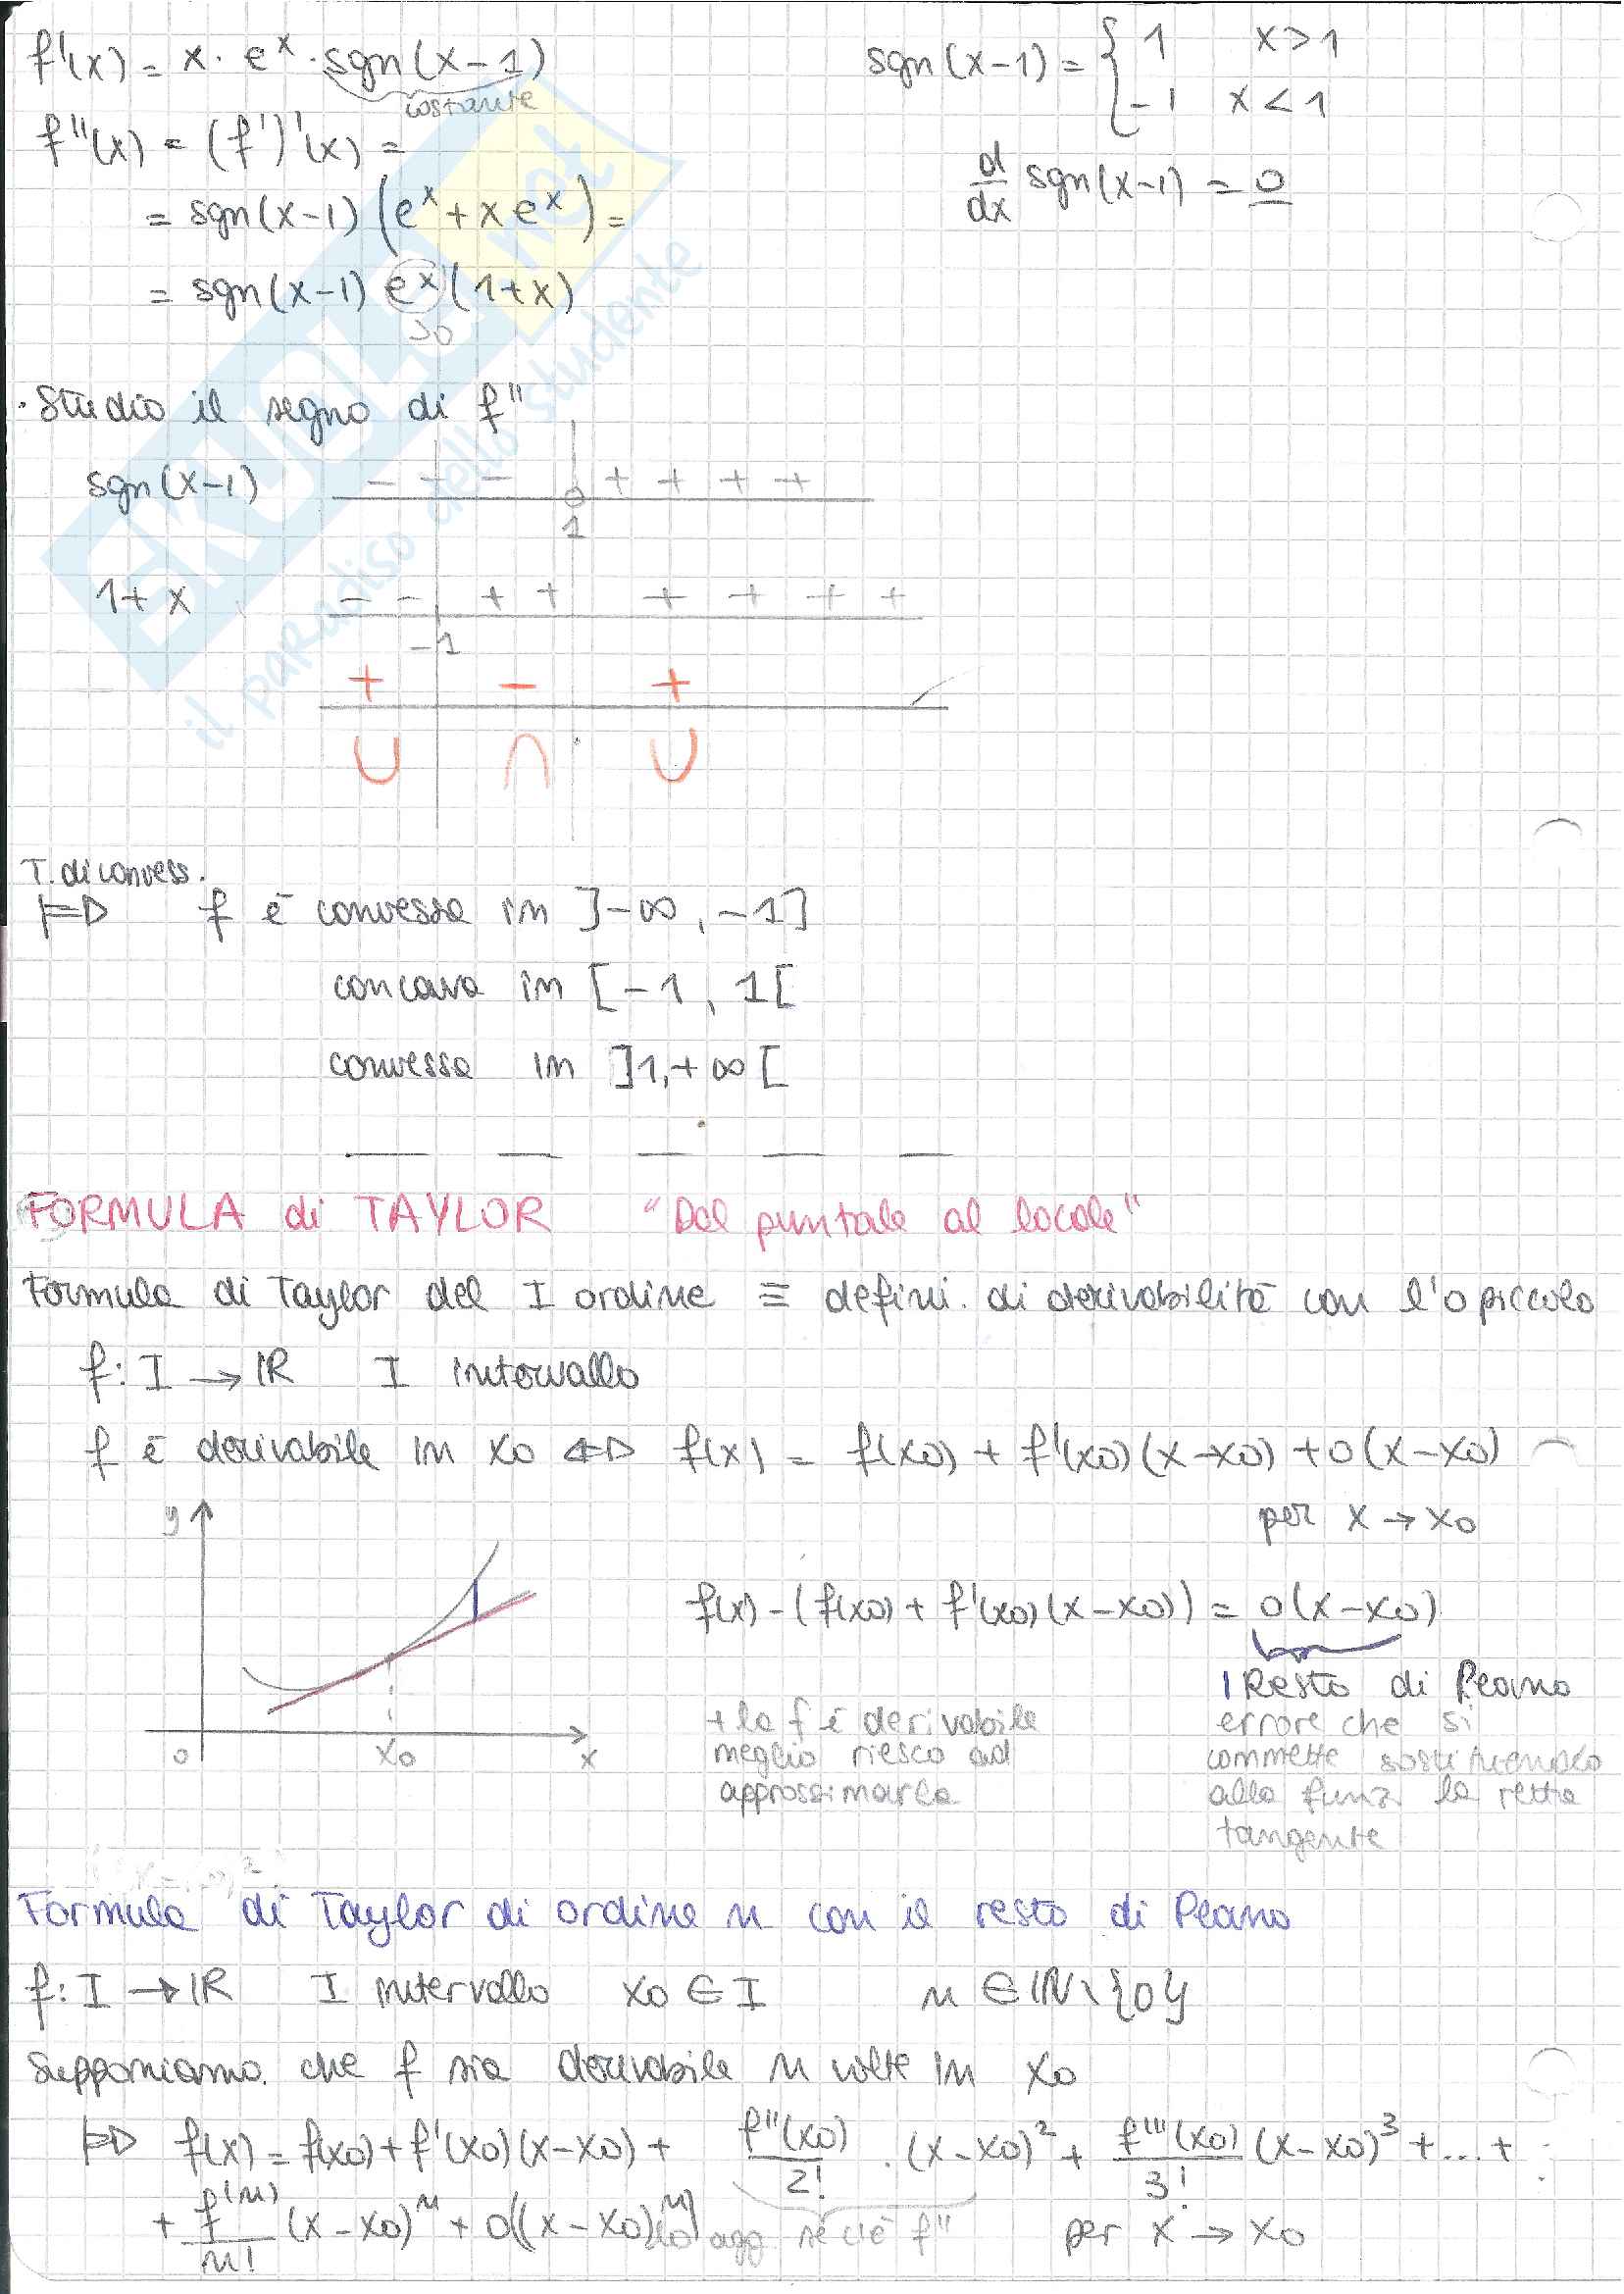 f'(x) = x · eˣ · sgn(x-1)
costante
sgn(x-1) = { 1 x>1
-1 x<1
f''(x) = (f')'(x) =
d/dx sgn(x-1) = 0
= sgn(x-1) (eˣ + x eˣ) =
= sgn(x-1) eˣ (1+x)
>0
· Studio il segno di f''
sgn(x-1) - - - + + + +
1
1+x - - + + + + + +
-1
+ - +
∪ ∩ ∪
T. di convess.
|=> f è convessa in ]-∞, -1]
concava in [-1, 1[
convessa in ]1, +∞[
FORMULA di TAYLOR "Dal puntale al locale"
Formula di Taylor del I ordine ≡ defini. di derivabilità con l'o piccolo
f: I → IR I intervallo
f è derivabile in x₀ <=> f(x) = f(x₀) + f'(x₀)(x-x₀) + o(x-x₀)
per x → x₀
y
f(x) - (f(x₀) + f'(x₀)(x-x₀)) = o(x-x₀)
0 x₀ x
+ la f è derivabile
meglio riesco ad
approssimarla
Resto di Peano
errore che si
commette sostituendo
alla funz. la retta
tangente
Formula di Taylor di ordine n con il resto di Peano
f: I → IR I intervallo x₀ ∈ I n ∈ IN\{0}
Supponiamo che f sia derivabile n volte in x₀
|=> f(x) = f(x₀) + f'(x₀)(x-x₀) + f''(x₀)/2! · (x-x₀)² + f'''(x₀)/3! (x-x₀)³ + ... +
+ f⁽ⁿ⁾/n! (x-x₀)ⁿ + o((x-x₀)ⁿ) lo agg se c'è f'' per x → x₀
SKUOLA.net
il paradiso dello studente